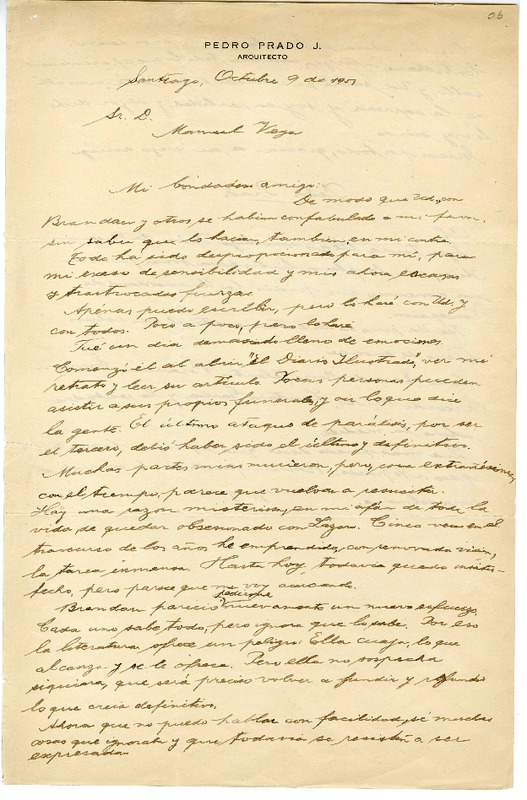 26
PEDRO PRADO J.
ARQUITECTO
Santiago, Octubre 9 de 1951
Sr. D.
Manuel Vega
Mi bondadoso amigo:
De modo que Ud., con
Brandau y otros se habían confabulado a mi favor,
sin saber que lo hacían, también, en mi contra.
Todo ha sido desproporcionado para mí, para
mi exceso de sensibilidad y mis ahora escasas
y trastrocadas fuerzas.
Apenas puedo escribir, pero lo haré con Ud. y
con todos. Poco a poco, pero lo haré
Fué un día demasiado lleno de emociones.
Comenzó él al abrir "El Diario Ilustrado", ver mi
retrato y leer su artículo. Pocas personas pueden
asistir a sus propios funerales, y oir lo que dice
la gente. El último ataque de parálisis, por ser
el tercero, debió haber sido el último y definitivo.
Muchas partes mías murieron, pero, cosa extrañísima,
con el tiempo, parece que vuelven a resucitar.
Hay una razón misteriosa, en mi afán de toda la
vida, de quedar obsesionado con Lázaro. Cinco veces en el
transcurso de los años he emprendido, con renovada visión,
la tarea inmensa. Hasta hoy, todavía quedo insatis-
fecho, pero parece que me voy acercando.
Brandau pareció nuevamente un nuevo esfuerzo.
Cada uno sabe todo, pero ignora que lo sabe. Por eso
la literatura ofrece un peligro: Ella cuaja, lo que
alcanza y se le ofrece. Pero ella no sospecha
siquiera, que será preciso volver a fundir y refundir
lo que creía definitivo.
Ahora que no puedo hablar con facilidad, sé muchas
cosas que ignoraba y que todavía se resisten a ser
expresadas.